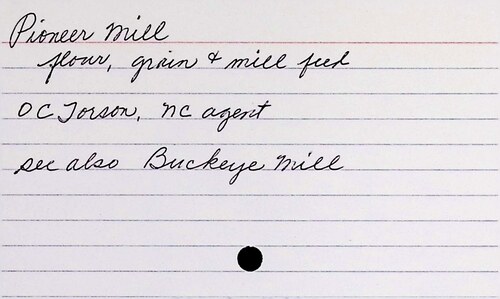 Pioneer Mill
flour, grain & mill feed
OC Torson, NC agent
see also Buckeye Mill